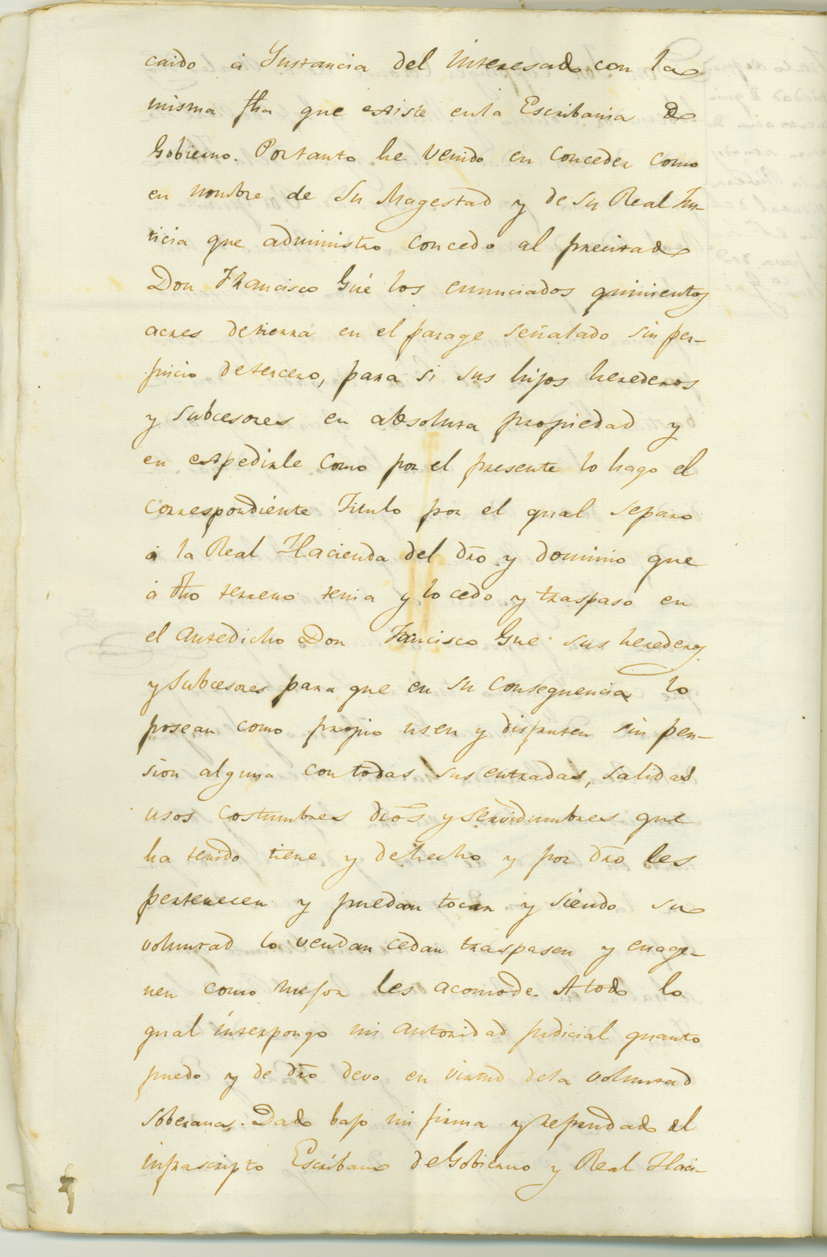 caido à Instancia del interesado con la
misma fha que existe enla Escribania de
Gobierno. Portanto he venido en conceder como
en nombre de Su Magestad y de su Real Jus-
ticia que administro concedo al precitado
Don Francisco Gué los enunciados quinientos
acres detierra en el parage señalado sin per-
juicio detercero, para si sus hijos herederos
y subcesores en absoluta propiedad y
en espedirle como por el presente lo hago el
correspondiente Titulo por el qual separo
à la Real Hacienda del dro y dominio que
à dho terreno tenia y lo cedo y traspaso en
el antedicho Don Fancisco Gué sus herederos
y subcesores para que en su consequencia lo
posean como propio usen y disfruten sin pen-
sion alguna contodas sus entradas, salidas
usos costumbres dros y servidumbres que
ha tenido tiene y dehecho y por dro les
pertenecen y puedan tocar y siendo su
voluntad lo vendan cedan traspasen y enage-
nen como mejor les acomode. Atodo lo
qual interpongo mi autoridad judicial quanto
puedo y de dro devo en virtud dela voluntad
soberana. Dado bajo mi firma y refrendado del
infrascripto Escribano deGobierno y Real Haci-